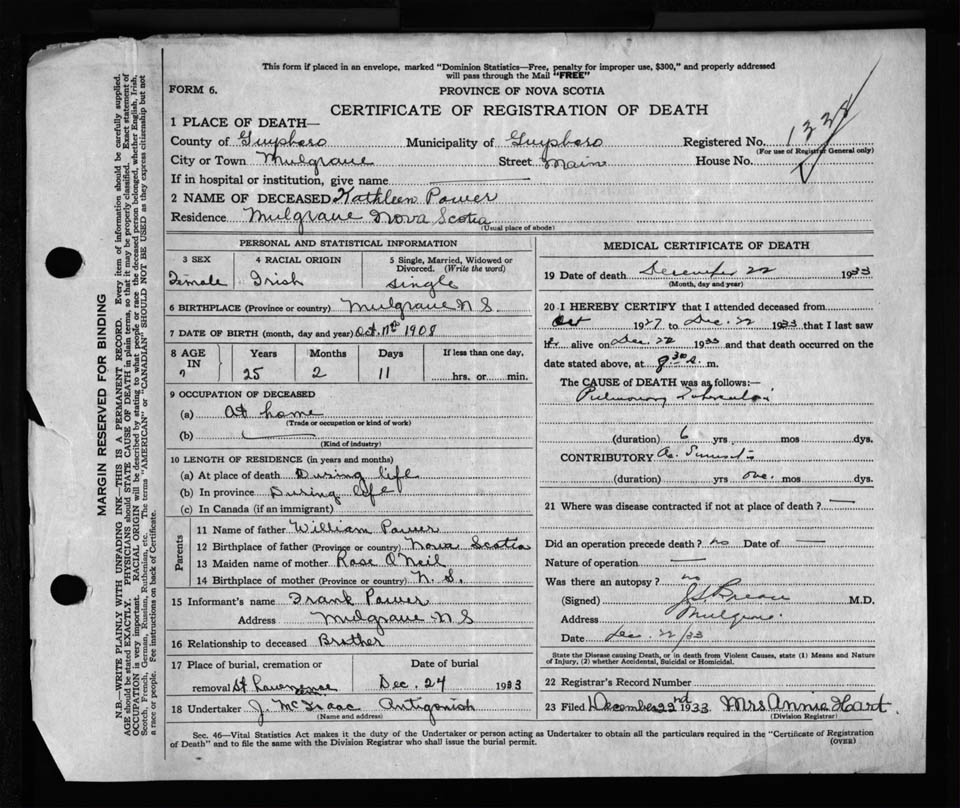 This form if placed in an envelope, marked "Dominion Statistics—Free, penalty for improper use, $300," and properly addressed
will pass through the Mail "FREE"
FORM 6.
PROVINCE OF NOVA SCOTIA
CERTIFICATE OF REGISTRATION OF DEATH
1 PLACE OF DEATH—
County of Guysboro Municipality of Guysboro Registered No. 1338
(For use of Registrar General only)
City or Town Mulgrave Street Main House No.
If in hospital or institution, give name
2 NAME OF DECEASED Kathleen Power
Residence Mulgrave Nova Scotia
(Usual place of abode)
PERSONAL AND STATISTICAL INFORMATION
3 SEX
Female
4 RACIAL ORIGIN
Irish
5 Single, Married, Widowed or
Divorced. (Write the word)
single
6 BIRTHPLACE (Province or country) Mulgrave N S.
7 DATE OF BIRTH (month, day and year) Oct. 11th 1908
8 AGE
IN
Years Months Days If less than one day,
25 2 11 hrs. or min.
9 OCCUPATION OF DECEASED
(a) At home
(Trade or occupation or kind of work)
(b)
(Kind of industry)
10 LENGTH OF RESIDENCE (in years and months)
(a) At place of death During life
(b) In province During life
(c) In Canada (if an immigrant)
Parents
11 Name of father William Power
12 Birthplace of father (Province or country) Nova Scotia
13 Maiden name of mother Rose O'Neil
14 Birthplace of mother (Province or country) N. S.
15 Informant's name Frank Power
Address Mulgrave N S
16 Relationship to deceased Brother
17 Place of burial, cremation or Date of burial
removal St. Lawrence Dec. 24 1933
18 Undertaker J. McIsaac Antigonish
(Name and address)
MEDICAL CERTIFICATE OF DEATH
19 Date of death December 22 1933
(Month, day and year)
20 I HEREBY CERTIFY that I attended deceased from
Oct 1927 to Dec. 22 1933 that I last saw
her alive on Dec. 22 1933 and that death occurred on the
date stated above, at m.
The CAUSE of DEATH was as follows:—
Pulmonary Tuberculosis
(duration) 6 yrs. mos dys.
CONTRIBUTORY
(duration) yrs one. mos dys.
21 Where was disease contracted if not at place of death?
Did an operation precede death? no Date of
Nature of operation
Was there an autopsy? no
(Signed) M.D.
Address Mulgrave
Date Dec. 22/33
State the Disease causing Death, or in death from Violent Causes, state (1) Means and Nature
of Injury, (2) whether Accidental, Suicidal or Homicidal.
22 Registrar's Record Number
23 Filed December 22nd 1933. Mrs Annie Hart.
(Division Registrar)
Sec. 46—Vital Statistics Act makes it the duty of the Undertaker or person acting as Undertaker to obtain all the particulars required in the "Certificate of Registration
of Death" and to file the same with the Division Registrar who shall issue the burial permit. (OVER)
MARGIN RESERVED FOR BINDING
N.B.—WRITE PLAINLY WITH UNFADING INK—THIS IS A PERMANENT RECORD. Every item of information should be carefully supplied.
AGE should be stated EXACTLY. PHYSICIANS should STATE CAUSE OF DEATH in plain terms, so that it may be properly classified. Exact statement of
OCCUPATION is very important. RACIAL ORIGIN will be described by stating to what people or race the deceased person belonged, whether English, Irish,
Scotch, French, German, Russian, Ruthenian, etc. The terms "AMERICAN" or "CANADIAN" SHOULD NOT BE USED as they express citizenship but not
a race or people. See instructions on back of Certificate.